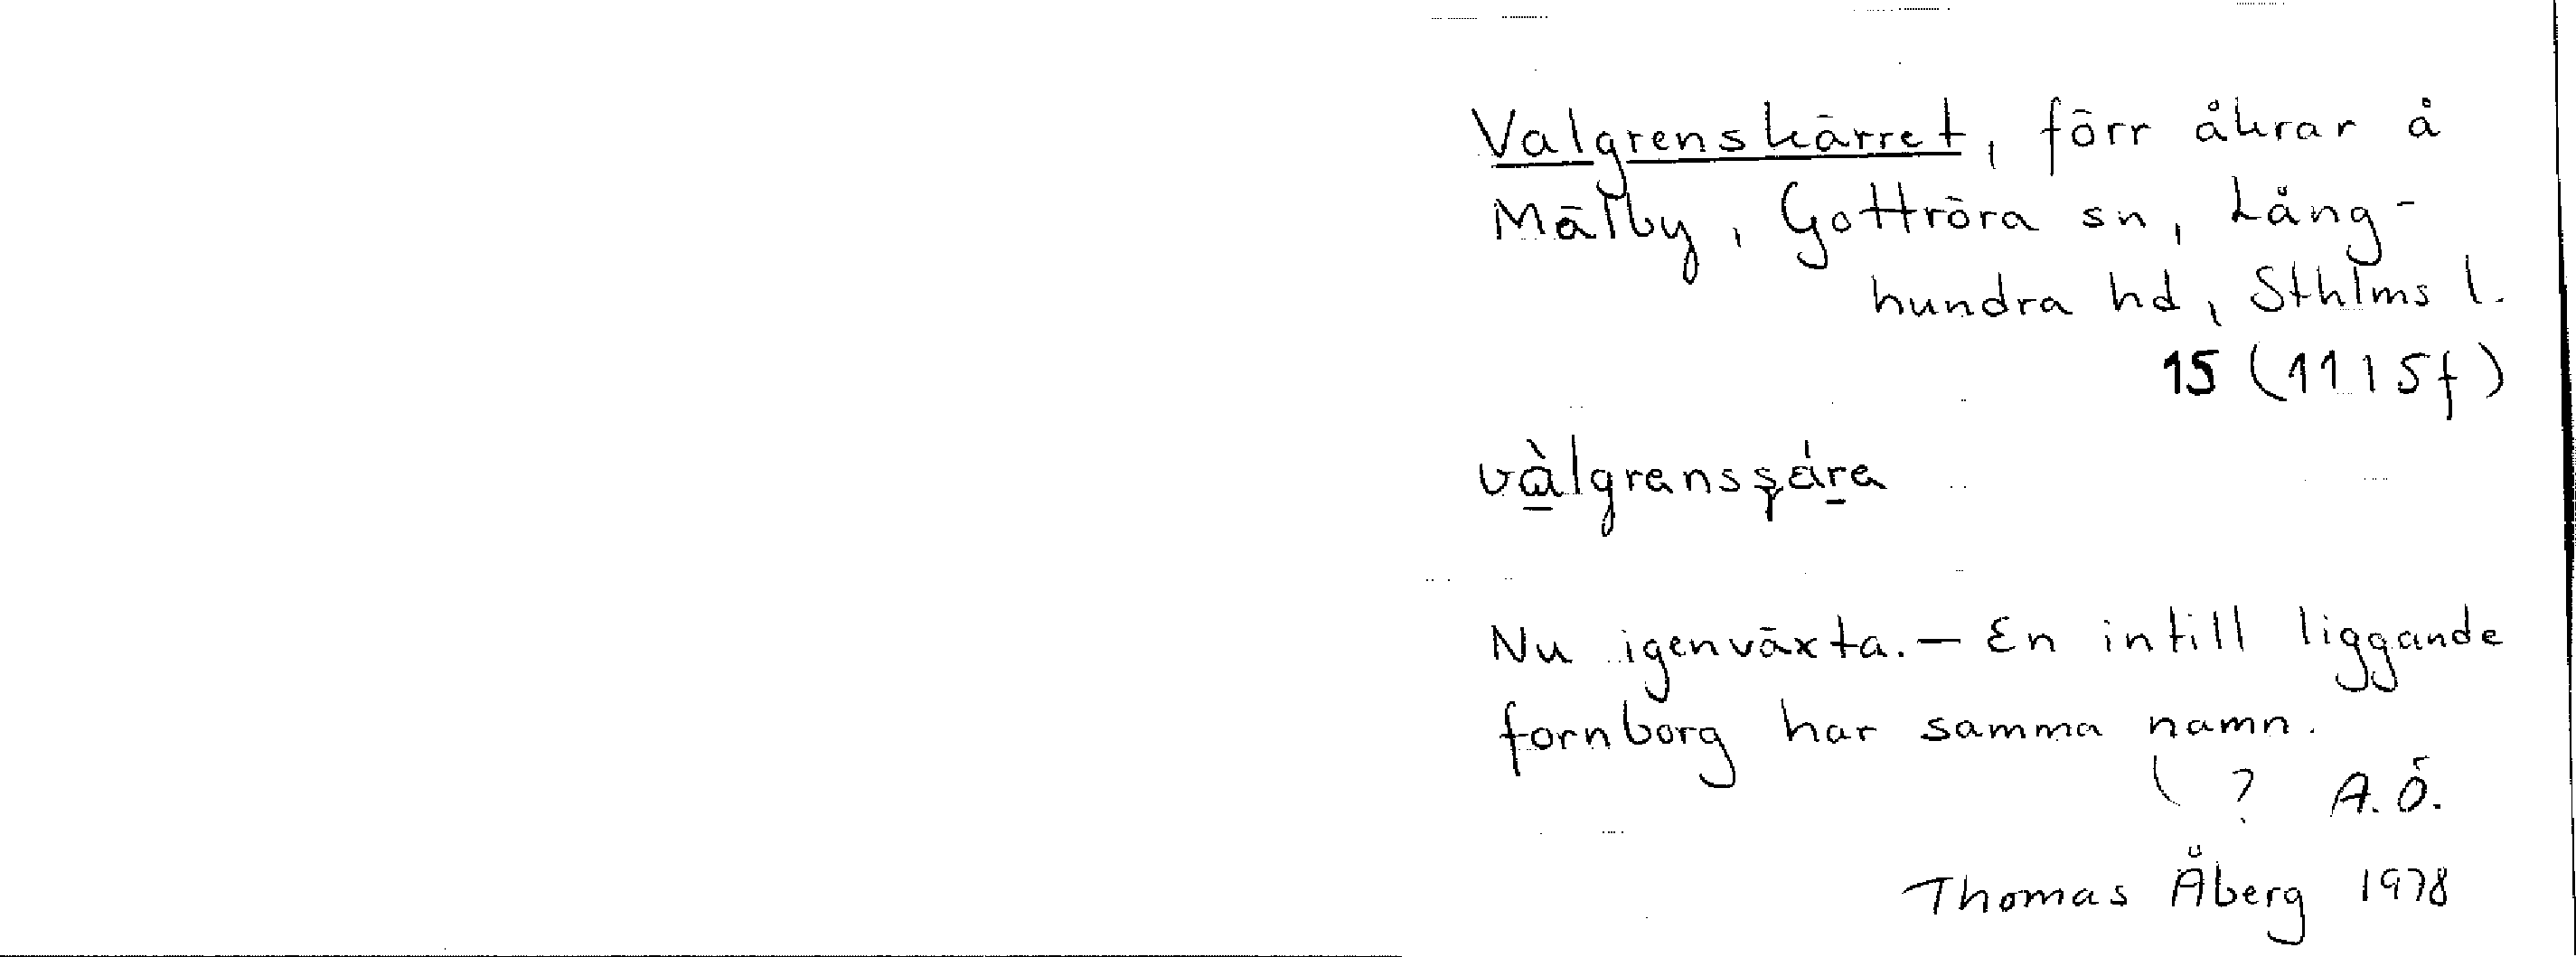 Valgrenskärret, förr åkrar å
Mälby, Gottröra sn, Lång-
hundra hd, Sthlms l.
15 (11 15f)
Nu igenväxta. — En intill liggande
fornborg har samma namn.
( ? A.Ö.
Thomas Åberg 1978